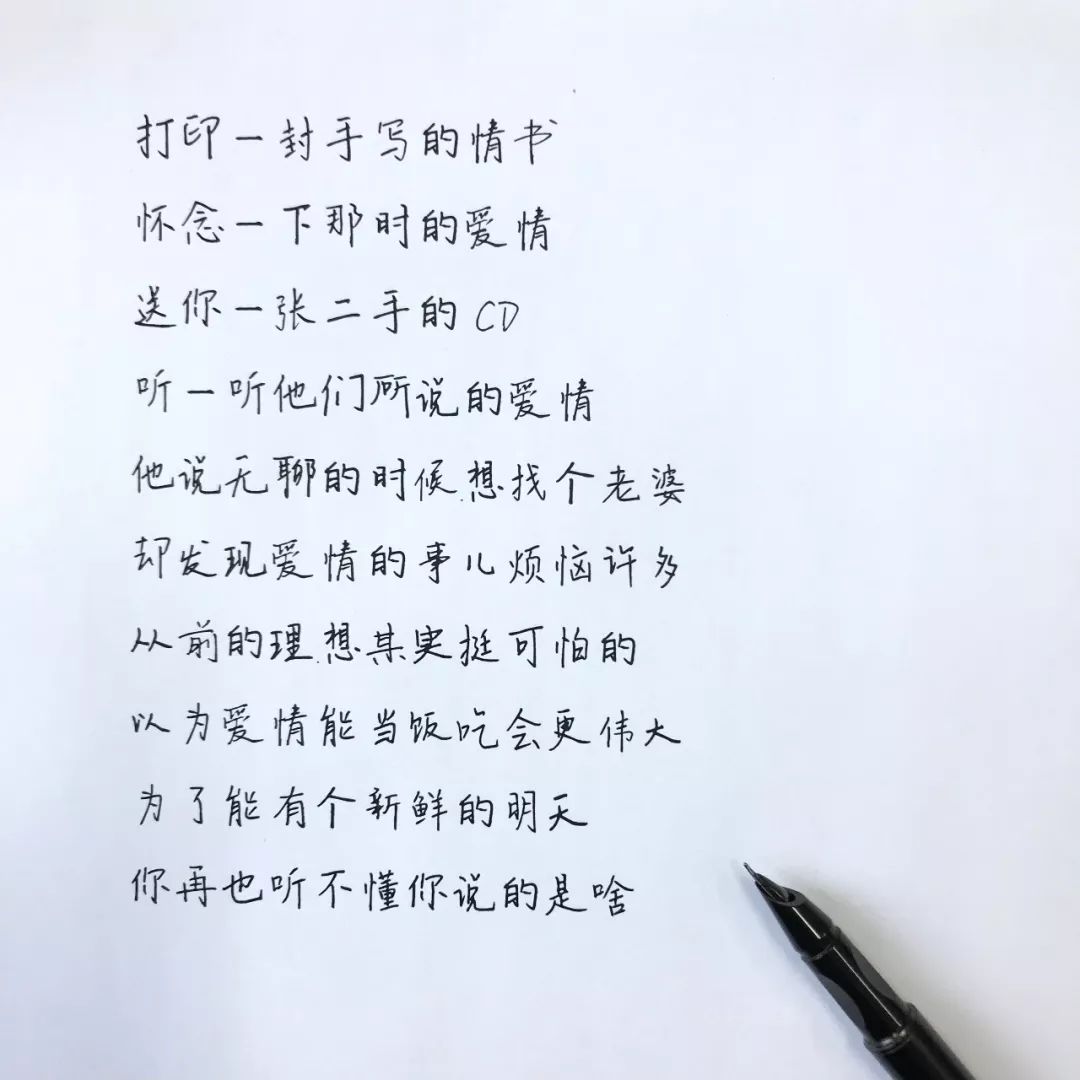 打印一封手写的情书
怀念一下那时的爱情
送你一张二手的CD
听一听他们所说的爱情
他说无聊的时候想找个老婆
却发现爱情的事儿烦恼许多
从前的理想其实挺可怕的
以为爱情能当饭吃会更伟大
为了能有个新鲜的明天
你再也听不懂你说的是啥